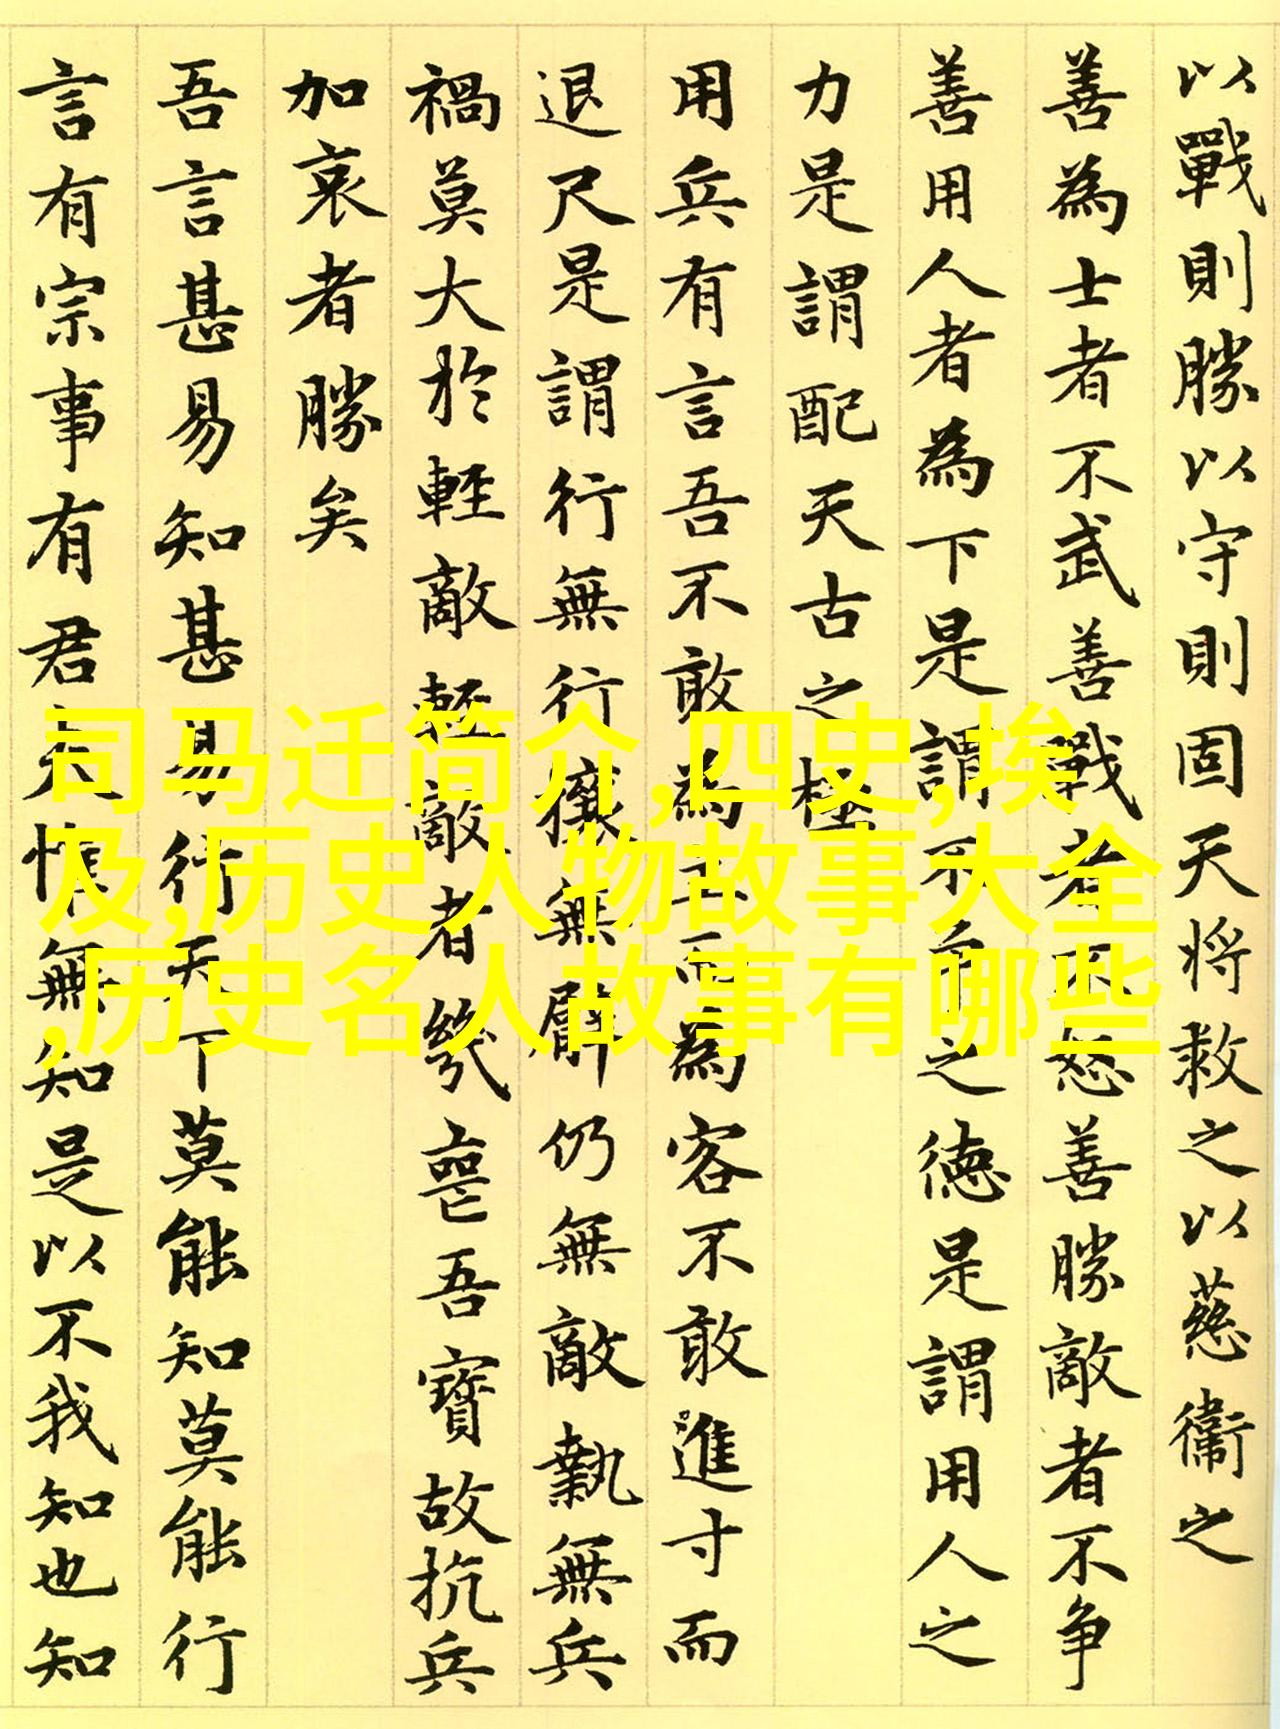 以戰則勝以守則固天將救之以慈衞之
善為士者不武善戰者不怒善勝敵者不争
善用人者為下是謂不争之德是謂用人之
力是謂配天古之極
用兵有言吾不敢為主而為客不敢進寸而
退尺是謂行無行攘無臂仍無敵執無兵
禍莫大於輕敵輕敵者幾喪吾寶故抗兵
加哀者勝矣
吾言甚易知甚易行天下莫能知莫能行
言有宗事有君夫惟無知是以不我知也知
司马迁简介,四史,埃
及,历史人物故事大全
,历史名人故事有哪些